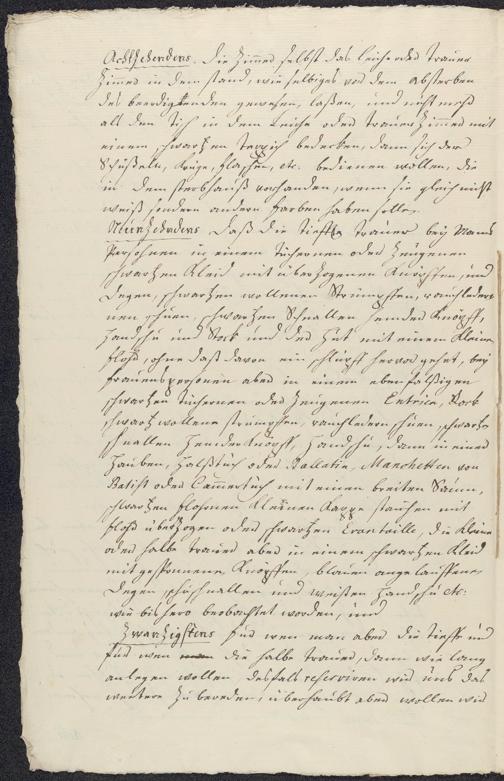 Achtzehendens. die Zimmer selbst das leiche oder trauer
Zimmer in dem stand, wie selbiges vor dem absterben
des beerdigenden gewesen, laßen, und nicht mehr
als den Tisch in dem Leiche oder trauer Zimmer mit
einem schwartzen Teppich bedecken, dann sich der
Schüßeln, Krüge, flaschen, etc. bedienen wollen, die
in dem sterbhauß vorhanden, wenn sie gleich nicht
weiß sondern andere farben haben solten.
Neünzehendens Daß die tieffe trauer bey Manns
Persohnen in einem tüchernen oder Zeügenen
schwartzen Kleid mit überzogenen Knöpffen, und
Degen, schwartzen wollenen Strümpffen, rauchleder-
nen schuen, schwartzen Schnallen hembder Knöpff,
Handschu und Stock und der Hut mit einem Kleinen
flohr, ohne daß davon ein schlupff hervor gehet, bey
frauenspersonen aber in einem ebenfalßigen
schwartzen tüchernen oder Zeügenen Entrice, Rock
schwartz wollene strümpfen, rauchledern schuen, schwartze
schnallen hembder Knöpff, Handschu, dann in einer
Hauben, Halßtuch oder Pallatin, Manchetten von
Batist oder Cammertuch mit einem breiten Saum,
schwartzen flohrnen Kleinen Kappe stauchen mit
flohr überzogen oder schwartzen Evantaille, die Kleine
oder halbe trauer aber in einem schwartzen Kleid
mit gesponnene Knöpffen, blauen angelauffenen
Degen, schuschnallen und weißen Handschu etc.
wie bishero beobachtet worden, und
Zwanzigstens für wen man aber die tieffe und
für wen die halbe trauer, dann wie lang
anlegen wollen, desfals reserviren wir uns das
weitere zu bereden, überhaubt aber wollen wir